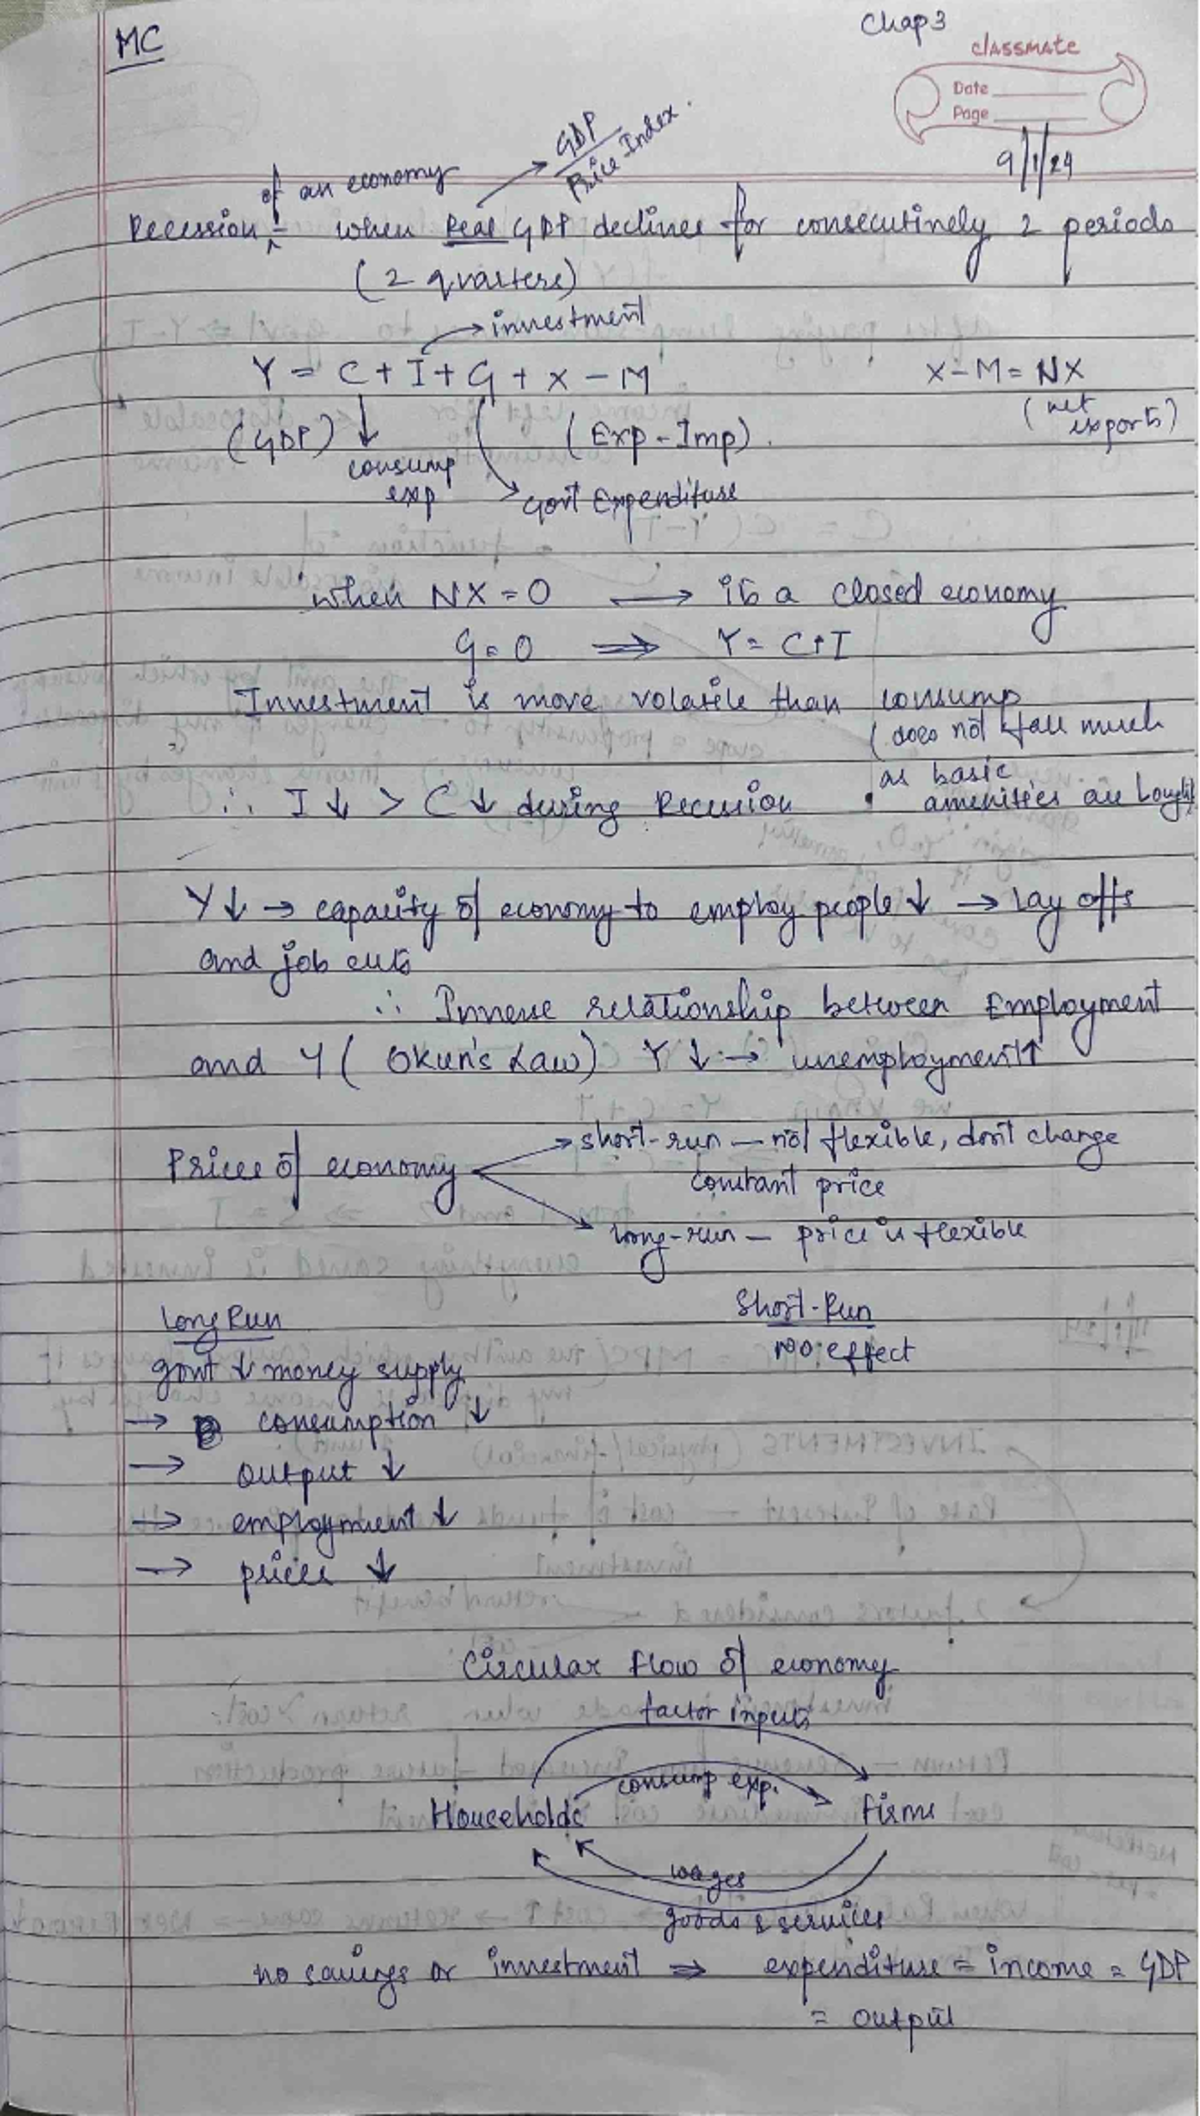 MC
Chap 3
classmate
Date
Page
9/1/24
of an economy → GDP / Price Index.
Recession :- when Real GDP declines for consecutinely 2 periods
(2 quarters)
→ investment
Y = C + I + G + X - M
X - M = NX
(net exports)
(GDP) ↓ (Exp - Imp).
consump exp
Govt Expenditure
when NX = 0 → its a closed economy
G = 0 ⇒ Y = C + I
Investment is more volatile than consump
(does not fall much
as basic
amenities are bought)
∴ I ↓ > C ↓ during Recession
Y ↓ → capacity of economy to employ people ↓ → lay offs
and job cuts
∴ Inverse relationship between Employment
and Y ( Okun's Law) Y ↓ → unemployment ↑
Prices of economy
→ short-run — not flexible, don't change
constant price
→ long-run — price is flexible
Long Run
Short-Run
govt ↓ money supply
no effect
→ consumption ↓
→ output ↓
→ employment ↓
→ prices ↓
Circular flow of economy
factor inputs
consump exp.
Households
firms
wages
goods & services
no savings or investment ⇒ expenditure = income = GDP
= output